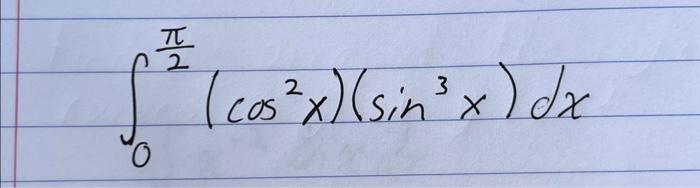 ∫₀^(π/2) (cos²x)(sin³x) dx